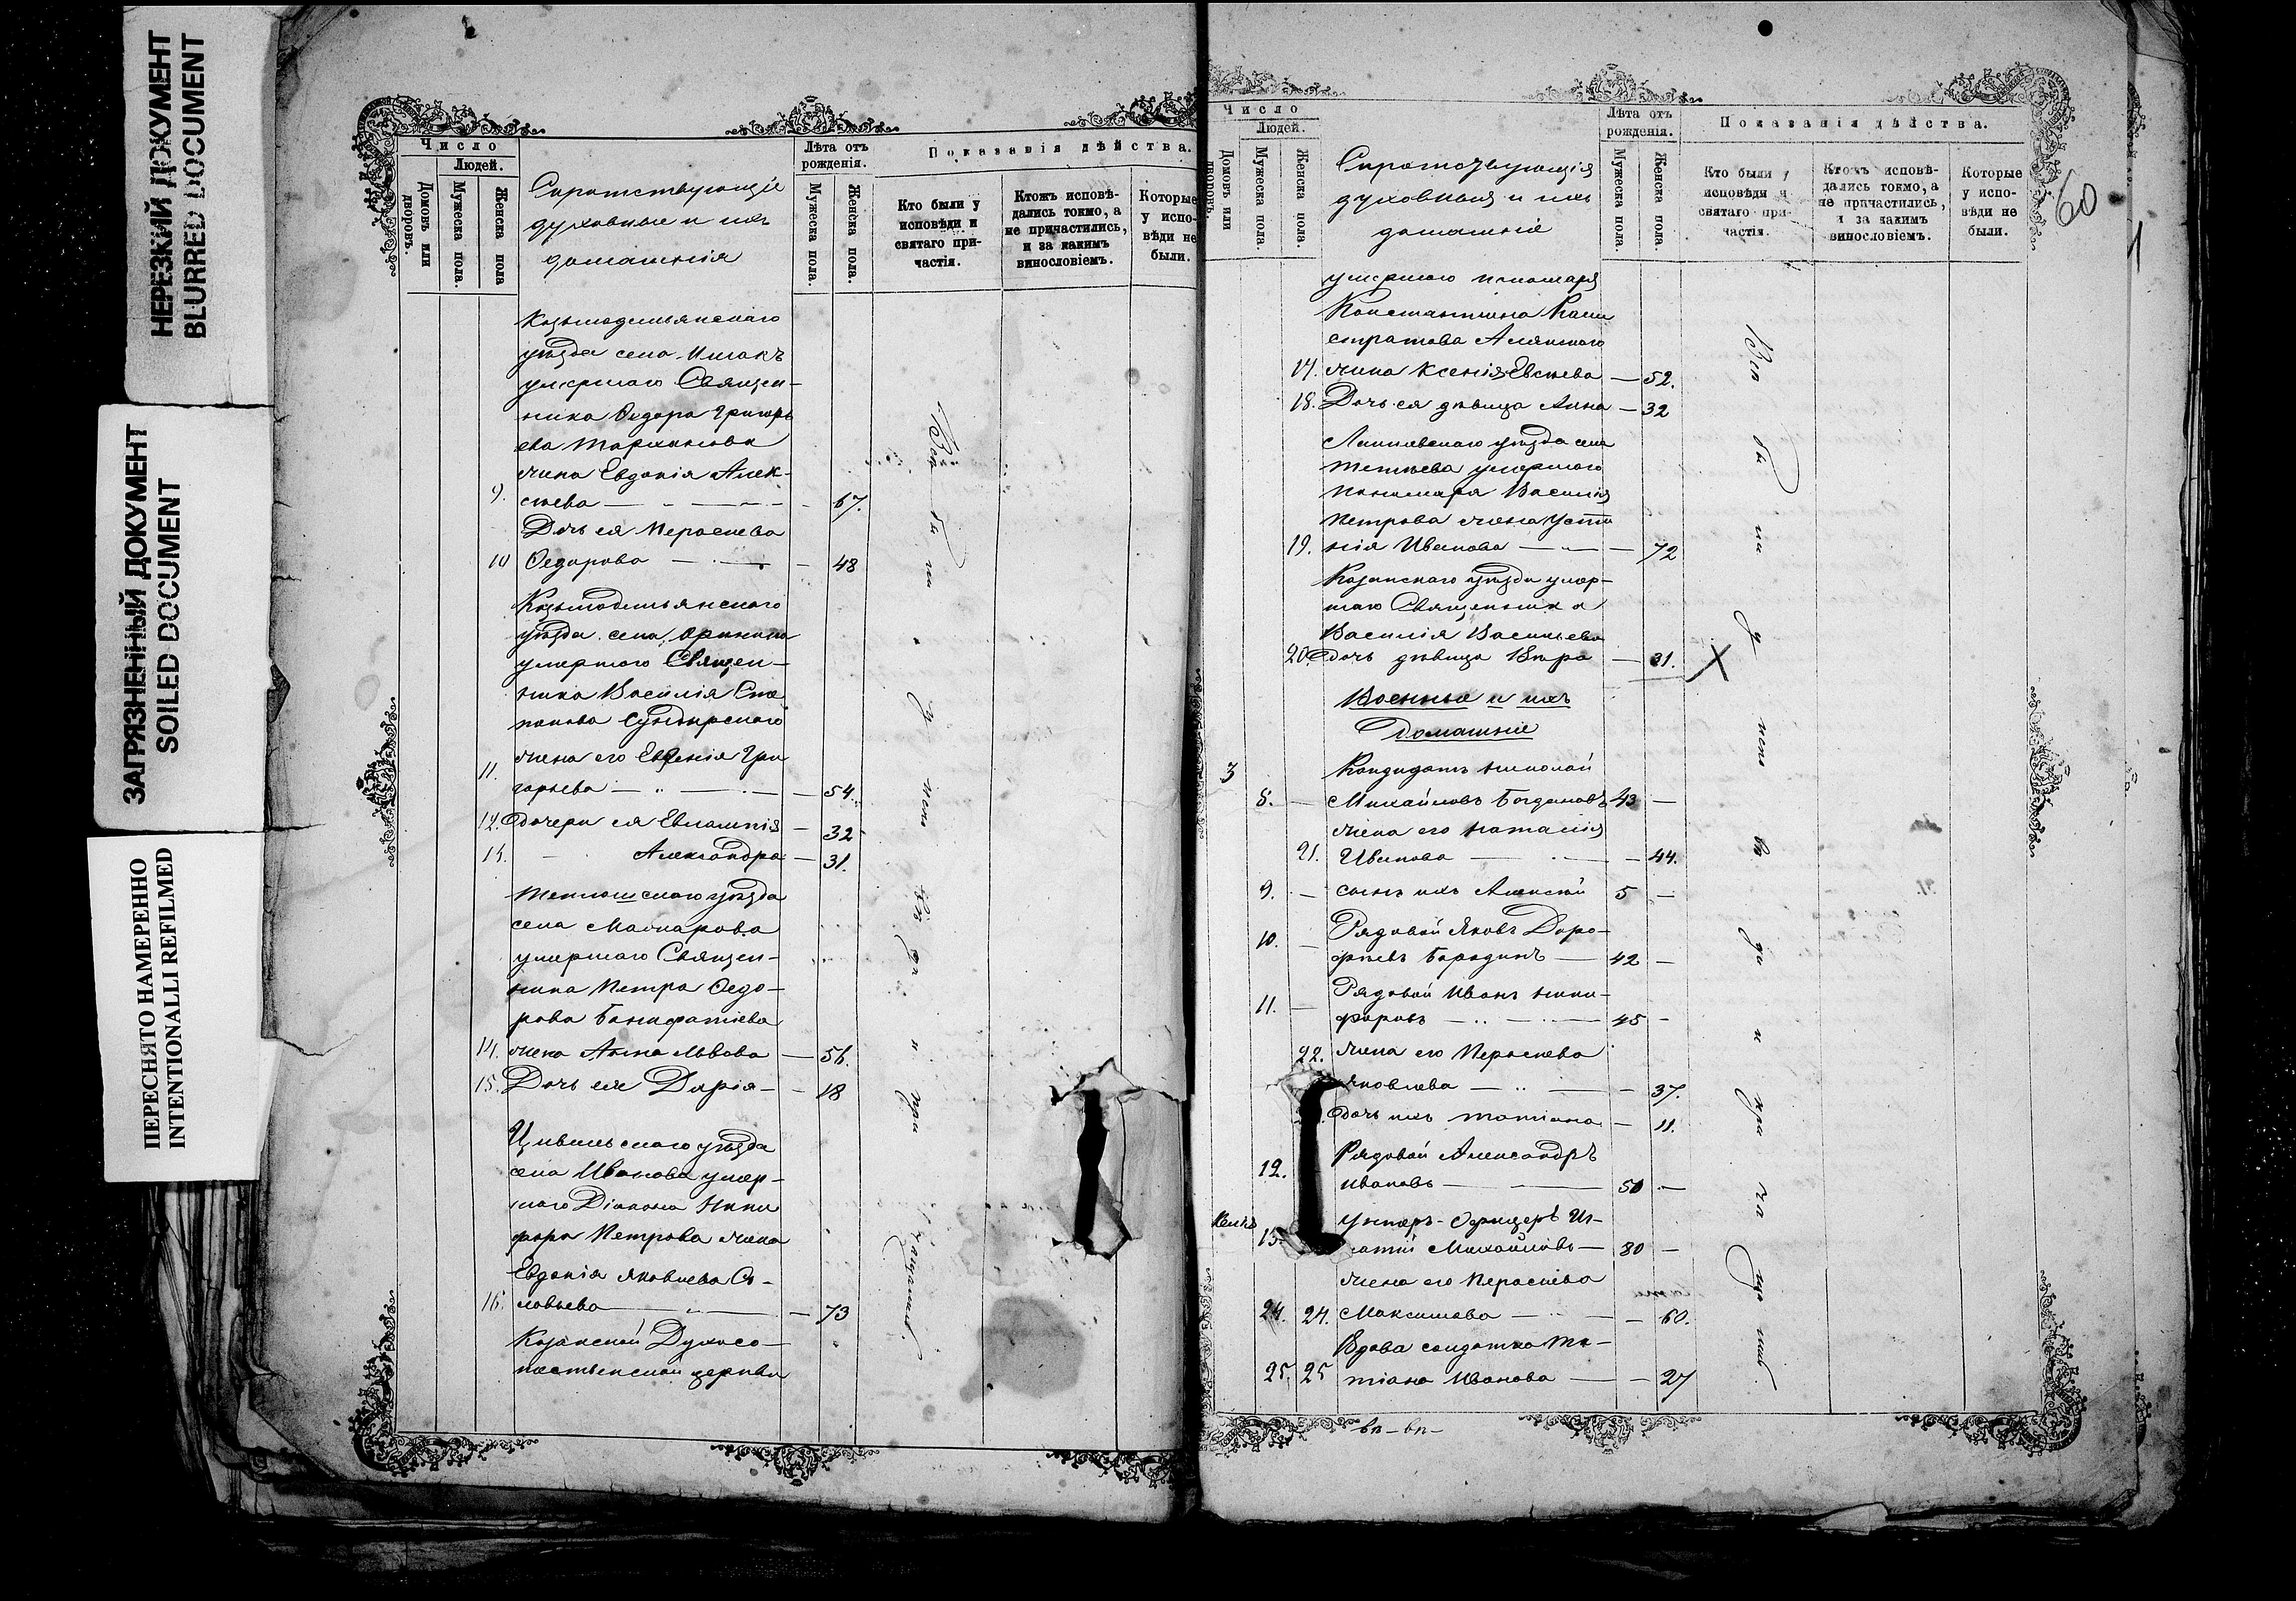 НЕРЕЗКИЙ ДОКУМЕНТ
BLURRED DOCUMENT
ЗАГРЯЗНЕННЫЙ ДОКУМЕНТ
SOILED DOCUMENT
ПЕРЕСНЯТО НАМЕРЕННО
INTENTIONALLI REFILMED
Число
Людей.
Домовъ или дворовъ.
Мужеска пола.
Женска пола
Сиротствующіе
духовные и ихъ
домашнія
Лѣта отъ
рожденія.
Мужеска пола.
Женска пола.
Показанія дѣйства.
Кто были у
исповѣди и
святаго при-
частія.
Ктожъ исповѣ-
дались токмо, а
не причастились,
и за какимъ
винословіемъ.
Которые
у испо-
вѣди не
были.
Козьмодемьянскаго
уѣзда села
умершаго Священ-
ника Ѳедора Григорь
ева
жена Евдокія Алек-
9. сѣева — 67.
Дочь ея Параскева
10 Ѳедорова — 48
Козьмодемьянскаго
уѣзда села
умершаго Священ-
ника Василія Сте
панова Сундырскаго
жена его Евгенія Гри
11. горьева — 54.
12. дочери ея Евлампія — 32
13. Александра — 31.
уѣзда
села Макарова
умершаго Священ-
ника Петра Ѳедо-
рова Бонифатіева
14. жена Анна Львова — 56.
15. Дочь ея Дарія — 18
Цивильскаго уѣзда
села Иванова умер-
шаго Діакона Ники
фора Петрова жена
Евдокія Яковлева Со-
16. ловьева — 73
Казанской Духосо-
шественской церкви
Всѣ были у исповѣди и причащались.
Число
Людей.
Домовъ или дворовъ.
Мужеска пола.
Женска пола.
Сиротствующія
духовныя и ихъ
домашніе
Лѣта отъ
рожденія.
Мужеска пола.
Женска пола.
Показанія дѣйства.
Кто были у
исповѣди и
святаго при-
частія.
Ктожъ исповѣ-
дались токмо, а
не причастились,
и за какимъ
винословіемъ.
Которые
у испо-
вѣди не
были.
60
умершаго пономаря
Константина Кали
стратова
17. жена Ксенія Евсѣева — 52.
18. Дочь ея дѣвица Анна — 32
Лаишевскаго уѣзда села
Тетѣева умершаго
пономаря Василія
Петрова жена Усти
19. нія Иванова — 72
Казанскаго уѣзда умер-
шаго Священника
Василія Васильева
20. дочь дѣвица Вѣра — 31.
Военные и ихъ
Домашніе
3 Кандидатъ Николай
8. — Михайловъ Богдановъ 43 —
жена его Наталія
21. Иванова — 44.
9. — сынъ ихъ Алексѣй 5 —
Рядовой Яковъ Доро-
10. — фѣевъ Бородинъ — 42 —
Рядовой Иванъ Ники-
11. — форовъ — 45 —
22. жена его Параскева
Яковлева — 37.
дочь ихъ Татіана — 11.
Рядовой Александръ
12. Ивановъ — 50 —
Унтеръ-Офицеръ Иг-
13. натій Михайловъ — 80 —
жена его Параскева
24. 24. Максимова — 60.
Вдова солдатка Та-
25. 25 тіана Иванова — 27
Всѣ были у исповѣди и причащались